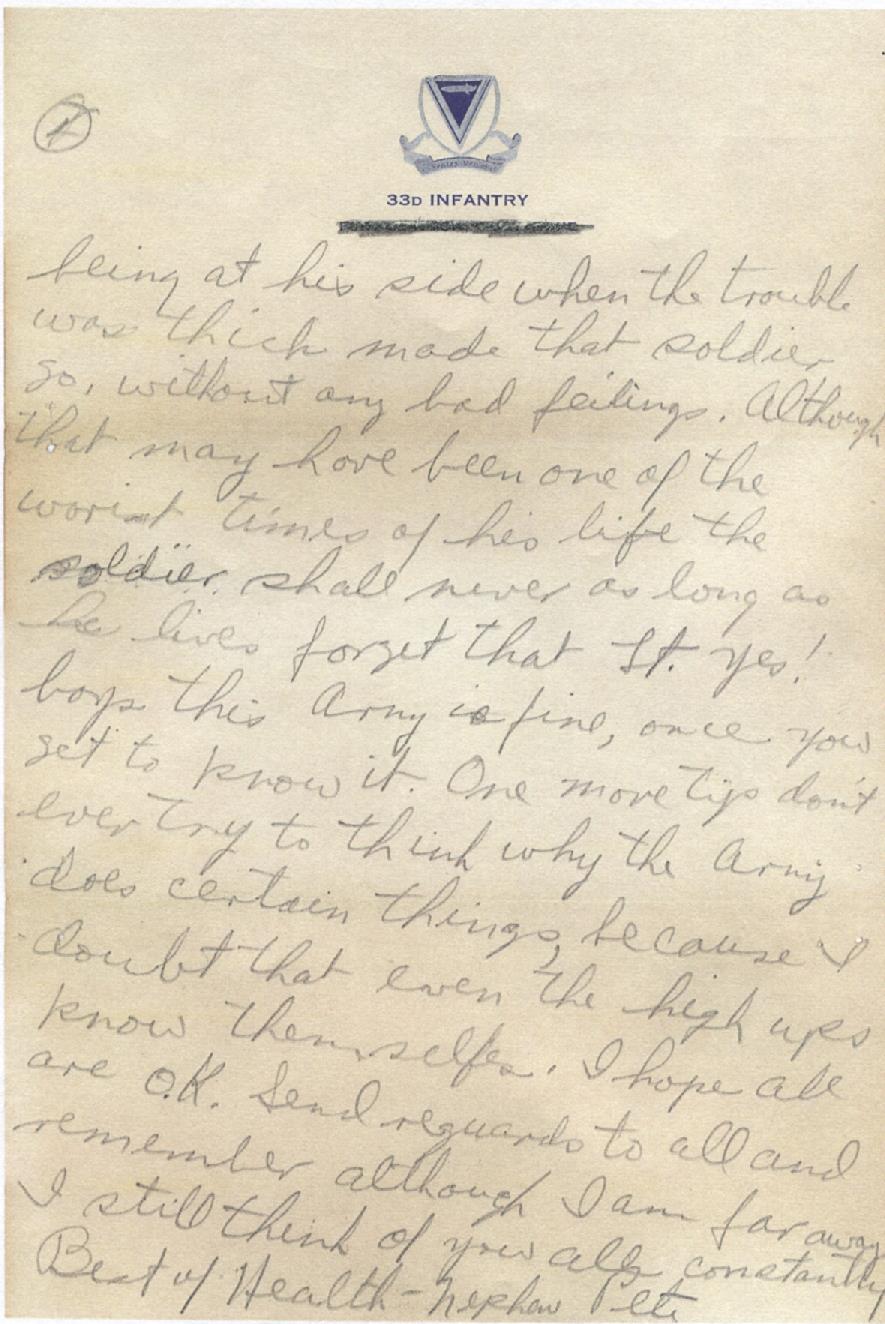 33D INFANTRY
being at his side when the trouble
was thich made that soldier
go, without any bad feilings. Although
that may have been one of the
worist times of his life the
soldier shall never as long as
he lives forget that Lt. yes!
boys this Army is fine, once you
get to know it. One more tips don't
ever try to think why the Army
does certain things, because I
doubt that even the high ups
know themselfes. I hope all
are O.K. Send reguards to all and
remember although I am far away
I still think of you all constantly
Best of Health - Nephew Pete